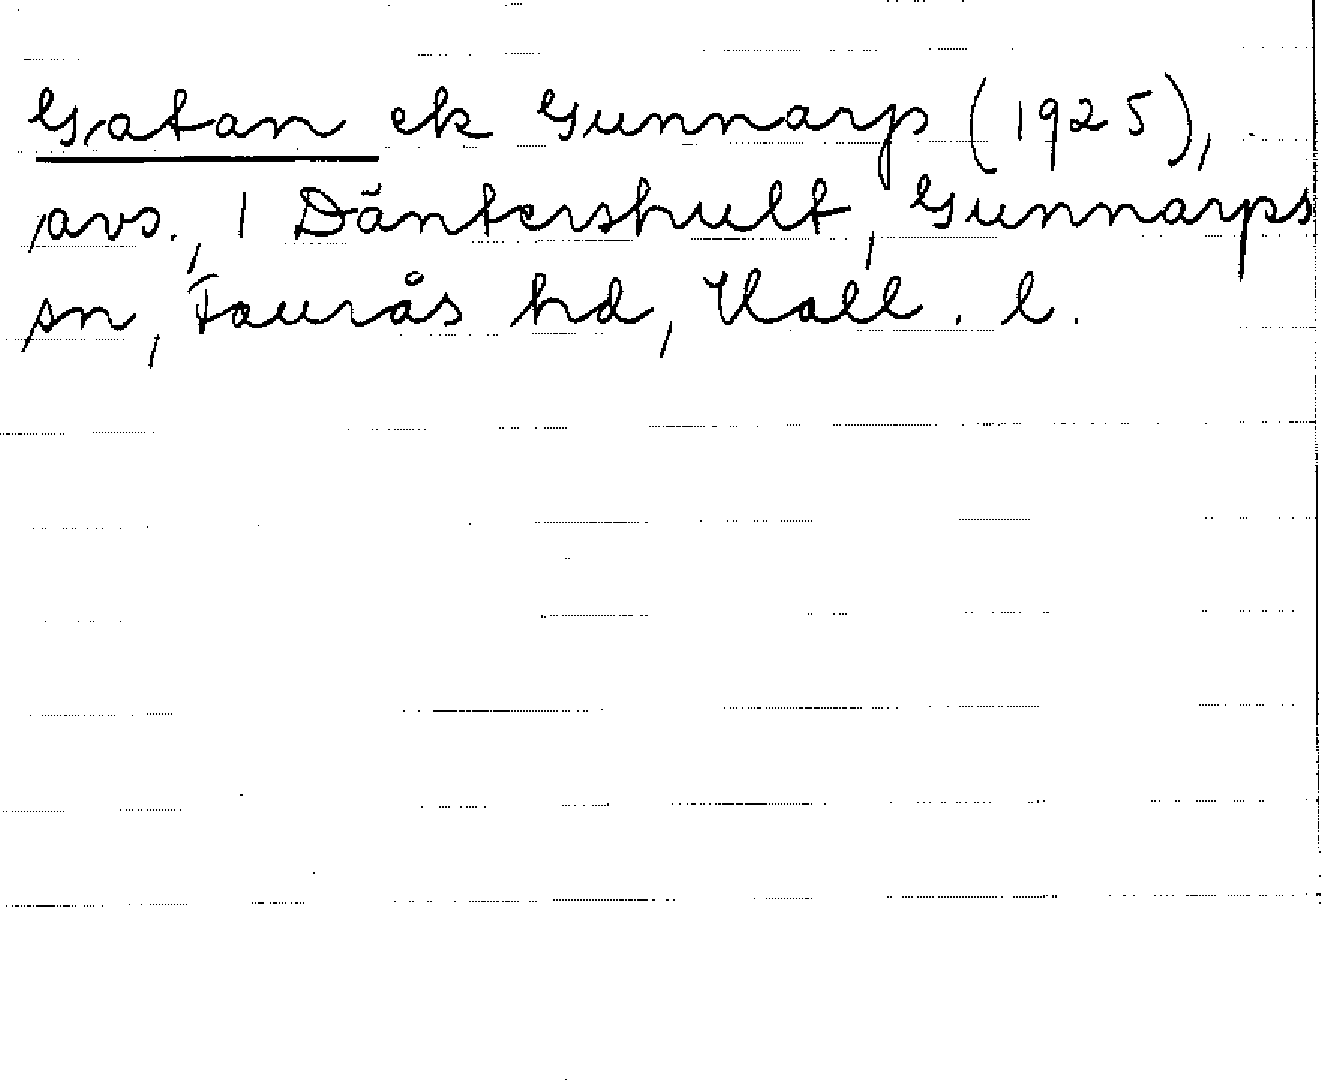 Gatan ek Gunnarp (1925),
avs., 1 Däntershult, Gunnarps
sn, Faurås hd, Hall. l.